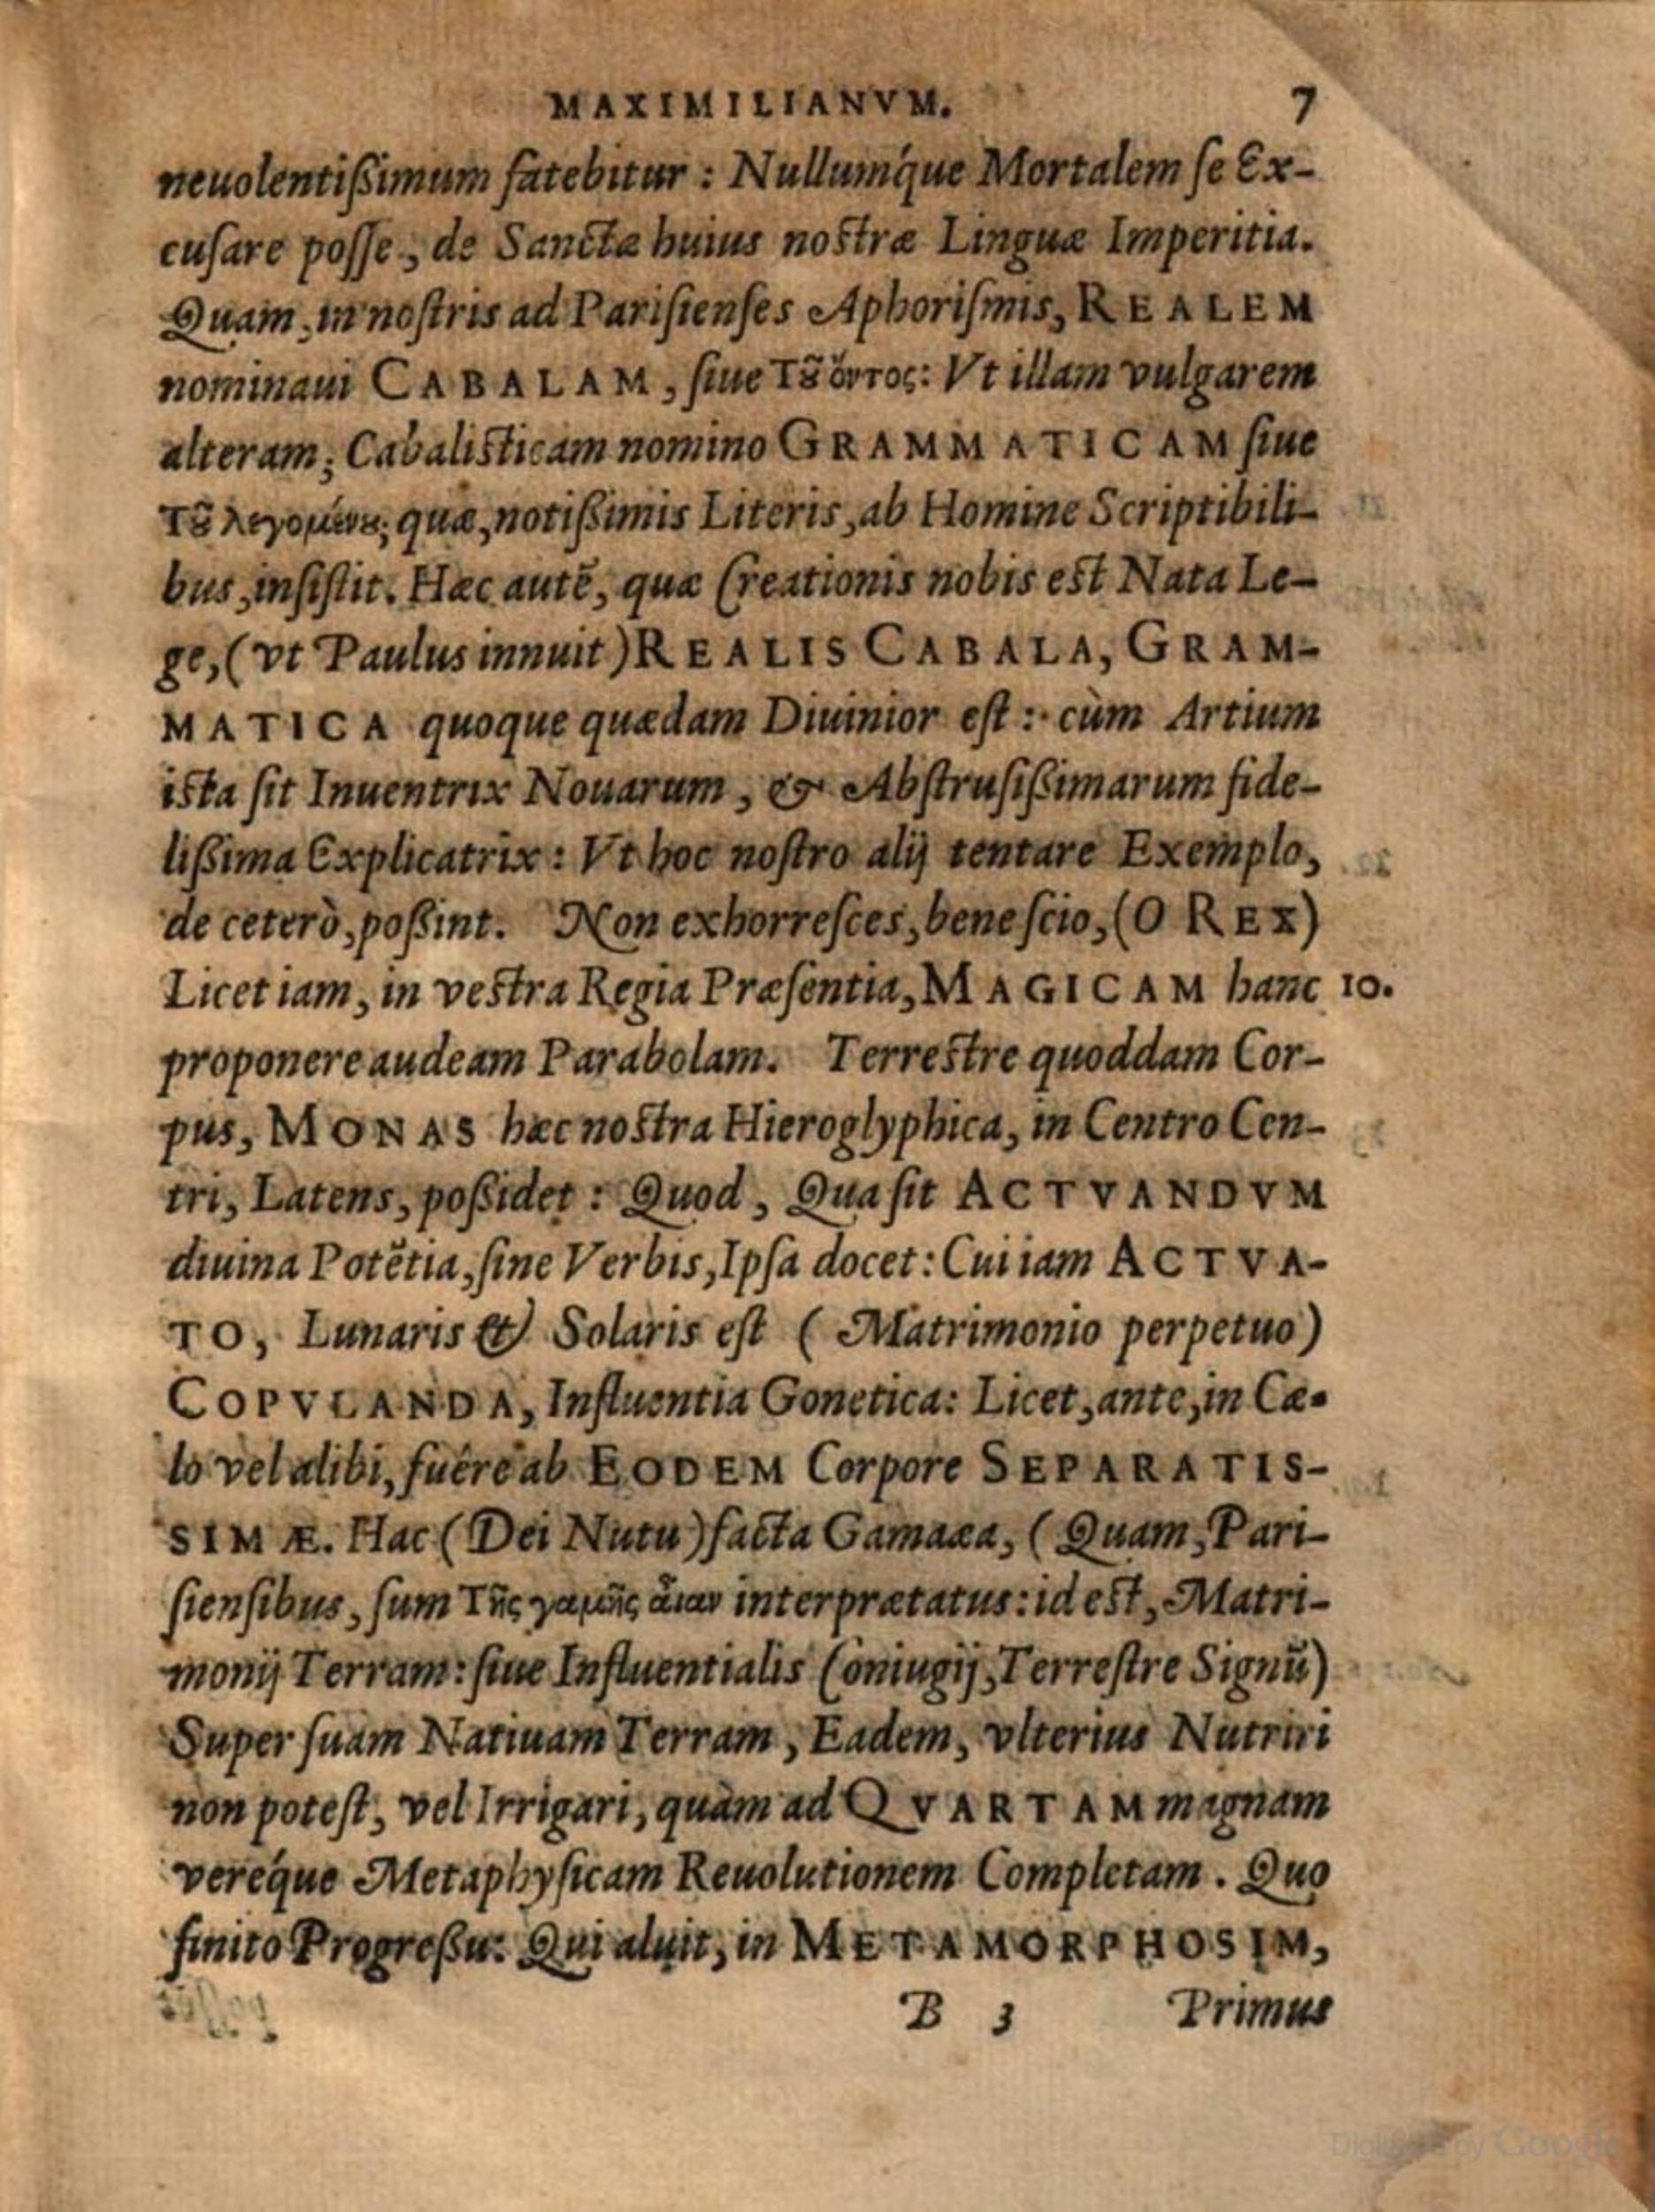 MAXIMILIANVM. 7
neuolentißimum fatebitur : Nullumq́ue Mortalem ſe Ex-
cuſare poſſe, de Sanctæ huius noſtræ Linguæ Imperitia.
Quam, in noſtris ad Pariſienſes Aphoriſmis, REALEM
nominaui CABALAM, ſiue Τȣ͂ ὄντος: Vt illam vulgarem
alteram; Cabaliſticam nomino GRAMMATICAM ſiue
Τȣ͂ λεγομένȣ; quæ, notißimis Literis, ab Homine Scriptibili-
bus, inſiſtit. Hæc autē, quæ Creationis nobis eſt Nata Le-
ge, (vt Paulus innuit) REALIS CABALA, GRAM-
MATICA quoque quædam Diuinior eſt : cùm Artium
iſta ſit Inuentrix Nouarum, & Abſtruſißimarum fide-
lißima Explicatrix : Vt hoc noſtro alij tentare Exemplo,
de ceterò, poßint. Non exhorreſces, bene ſcio, (O REX)
Licet iam, in veſtra Regia Præſentia, MAGICAM hanc 10.
proponere audeam Parabolam. Terreſtre quoddam Cor-
pus, MONAS hæc noſtra Hieroglyphica, in Centro Cen-
tri, Latens, poßidet : Quod, Qua ſit ACTVANDVM
diuina Potētia, ſine Verbis, Ipſa docet: Cui iam ACTVA-
TO, Lunaris & Solaris eſt ( Matrimonio perpetuo )
COPVLANDA, Influentia Gonetica: Licet, ante, in Cæ-
lo vel alibi, fuêre ab EODEM Corpore SEPARATIS-
SIMÆ. Hac (Dei Nutu) facta Gamaæa, ( Quam, Pari-
ſienſibus, ſum Τῆς γαμῆς ἆιαν interprætatus: id eſt, Matri-
monij Terram: ſiue Influentialis Coniugij, Terreſtre Signū)
Super ſuam Natiuam Terram, Eadem, vlterius Nutriri
non poteſt, vel Irrigari, quàm ad QVARTAM magnam
vereq́ue Metaphyſicam Reuolutionem Completam. Quo
finito Progreßu: Qui aluit, in METAMORPHOSIM,
B 3 Primus
Digitized by Google